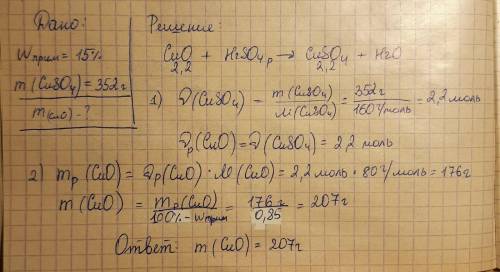 Дано:
Wприм = 15%
m(CuSO4) = 352г
m(CuO) - ?
Решение:
CuO + H2SO4p → CuSO4 + H2O
2,2 2,2
1) ν(CuSO4) = m(CuSO4) / M(CuSO4) = 352г / 160г/моль = 2,2 моль
νp(CuO) = ν(CuSO4) = 2,2 моль
2) mp(CuO) = νp(CuO) · M(CuO) = 2,2 моль · 80г/моль = 176г
m(CuO) = mp(CuO) / 100% - Wприм = 176г / 0,85 = 207г
Ответ: m(CuO) = 207г